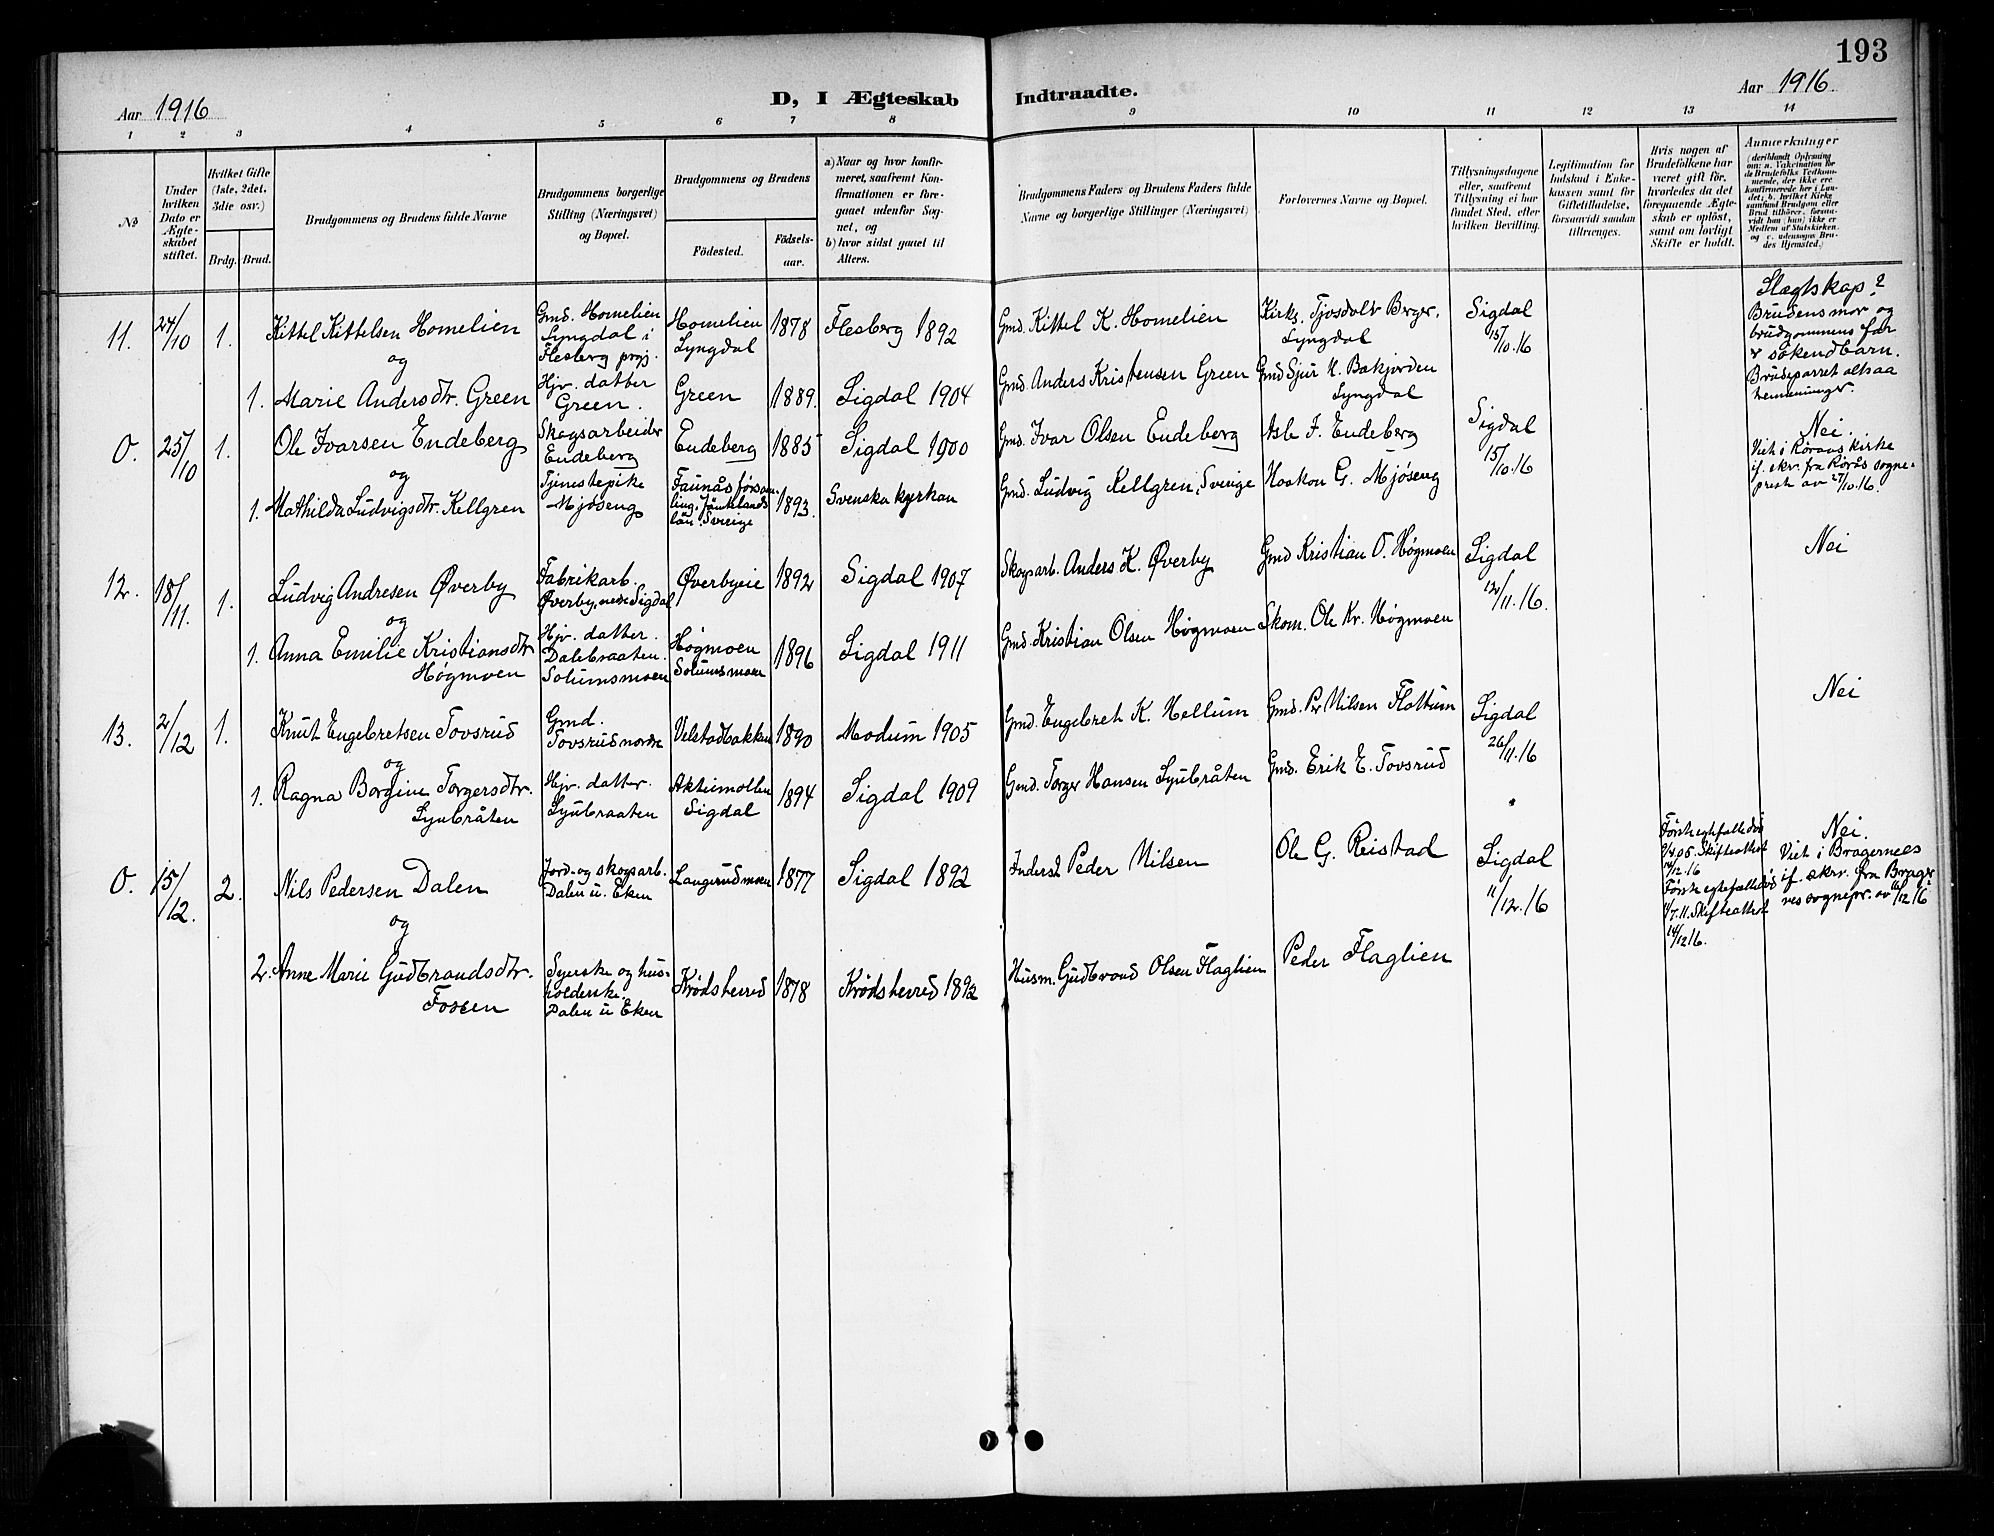 193
Aar 1916
D, I Ægteskab Indtraadte.
Aar 1916
1 2 3 4 5 6 7 8 9 10 11 12 13 14
No
Under hvilken Dato er Ægteskabet stiftet.
Hvilket Gifte (1ste, 2det, 3die osv.)
Brdg. Brud.
Brudgommens og Brudens fulde Navne
Brudgommens borgerlige Stilling (Næringsvei) og Bopæl.
Brudgommens og Brudens
Födested.
Födsels-aar.
a) Naar og hvor konfirmeret, saafremt Konfirmationen er foregaaet udenfor Sognet, og
b) hvor sidst gaaet til Alters.
Brudgommens Faders og Brudens Faders fulde Navne og borgerlige Stillinger (Næringsvei)
Forlovernes Navne og Bopæl.
Tillysningsdagene eller, saafremt Tillysning ei har fundet Sted, efter hvilken Bevilling.
Legitimation for Indskud i Enkekassen samt for Giftetilladelse, forsaavidt saadan tiltrænges.
Hvis nogen af Brudefolkene har været gift för, hvorledes da det foregaaende Ægteskab er oplöst, samt om lovligt Skifte er holdt.
Anmærkninger
(deriblandt Oplysning om: a. Vakcination for de Brudefolks Vedkommende, der ikke ere konfirmerede her i Landet; b. hvilket Kirkesamfund Brudgom eller Brud tilhörer, forsaavidt han (hun) ikke er Medlem af Statskirken, og c. udensogns Brudes Hjemsted.)
11. 24/10 1. Kittel Kittelsen Homelien
Gmd. Homelien
Lyngdal i
Flesberg prgj.
Homelien
Lyngdal
1878 Flesberg 1892
Gmd. Kittel K. Homelien
Kirks. Tjosdolv Berger,
Lyngdal
Sigdal
15/10.16
Slegtskap?
Brudens mor og
brudgommens far
er søkendbarn.
Brudeparret altsaa
tremenninger.
og
1. Marie Andersdtr. Green
Hjv. datter
Green.
Green
1889. Sigdal 1904
Gmd. Anders Kristensen Green
Gmd Sjur H. Bakjorden
Lyngdal
0. 25/10 1. Ole Ivarsen Endeberg
Skogsarbeider
Endeberg
Endeberg
1885 Sigdal 1900
Gmd. Ivar Olsen Endeberg
Asle I. Endeberg
Sigdal
15/10.16
Nei.
Viet i Røraas kirke
if. skr. fra Rørås sogne-
prest av 27/10.16.
og
1. Mathilda Ludvigsdtr. Kellgren
Tjenestepike
Mjøseng
1893. Svenska kyrkan
Gmd. Ludvig Kellgren, Sverige
Haakon G. Mjøseng
12. 18/11. 1. Ludvig Andresen Øverby
Fabrikarb.
Øverby, nedre Sigdal
Øverbyeie
1892 Sigdal 1907
Skogsarb. Anders K. Øverby
Gmd Kristian O. Høgmoen
Sigdal
12/11.16.
Nei
og
1. Anna Emilie Kristiansdtr
Høgmoen
Hjv. datter.
Dalebraaten.
Solumsmoen
Høgmoen
Solumsmoen
1896 Sigdal 1911
Gmd Kristian Olsen Høgmoen
Skom. Ole Kr. Høgmoen
13. 2/12 1. Knut Engebretsen Tovsrud
Gmd.
Tovsrud nordre
Velstadbakken
1890 Modum 1905
Gmd. Engebret K. Hellum
Gmd. Per Nilsen Flattum
Sigdal
26/11.16
Nei
og
1. Ragna Borgine Torgersdtr.
Lyubråten
Hjv. datter.
Lyubraaten
Aktiemøllen
Sigdal
1894 Sigdal 1909
Gmd. Torger Hansen Lyubråten
Gmd. Erik E. Tovsrud
0. 15/12. 2. Nils Pedersen Dalen
Jord- og skogsarb.
Dalen u. Eken
Langerudmoen
1877 Sigdal 1892
Inderst Peder Nilsen
Ole G. Reistad
Sigdal
11/12.16
Første egtefælle død
9/4.05. Skifteattest
14/12.16
Første egtefælle død
1/7.11. Skifteattest
14/12 16.
Nei.
Viet i Bragernes
if. skr. fra Brager
nes sognepr. av 16/12 16
og
2. Anne Marie Gudbrandsdtr.
Fossen
Syerske og hus-
holderske.
Dalen u. Eken
Krødsherred
1878 Krødsherred 1892
Husm. Gudbrand Olsen Flaglien
Peder Flaglien